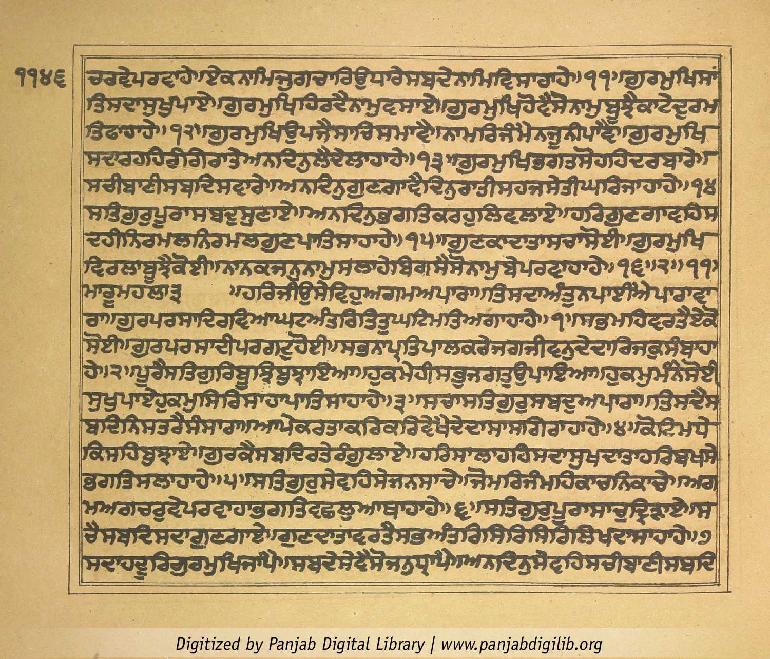 ੧੧੪੬
ਚਰਵੇਪਰਵਾਹੇ॥ਏਕਨਾਮਿਜੁਗਚਾਰਿਉਧਾਰੇਸਬਦੇਨਾਮਿਵਿਸਾਹਾਹੇ॥੧੧॥ਗੁਰਮੁਖਿਸਾਂ
ਤਿਸਦਾਸੁਖੁਪਾਏ॥ਗੁਰਮੁਖਿਹਿਰਦੈਨਾਮੁਵਸਾਏ॥ਗੁਰਮੁਖਿਹੋਵੈਸੋਨਾਮੁਬੂਝੈਕਾਟੇਦੁਰਮ
ਤਿਫਾਹਾਹੇ॥੧੨॥ਗੁਰਮੁਖਿਉਪਜੈਸਾਚਿਸਮਾਵੈ॥ਨਾਮਰਿਜੰਮੈਨਜੂਨੀਪਾਵੈ॥ਗੁਰਮੁਖਿ
ਸਦਾਰਹਹਿਰੰਗਿਰਾਤੇਅਨਦਿਨੁਲੈਦੇਲਾਹਾਹੇ॥੧੩॥ਗੁਰਮੁਖਿਭਗਤਸੋਹਹਿਦਰਬਾਰੇ॥
ਸਚੀਬਾਣੀਸਬਦਿਸਵਾਰੇ॥ਅਨਦਿਨੁਗੁਣਗਾਵੈਦਿਨੁਰਾਤੀਸਹਜਸੇਤੀਘਰਿਜਾਹਾਹੇ॥੧੪
ਸਤਿਗੁਰੁਪੂਰਾਸਬਦੁਸੁਣਾਏ॥ਅਨਦਿਨੁਭਗਤਿਕਰਹੁਲਿਵਲਾਏ॥ਹਰਿਗੁਣਗਾਵਹਿਸ
ਦਹੀਨਿਰਮਲਨਿਰਮਲਗੁਣਪਾਤਿਸਾਹਾਹੇ॥੧੫॥ਗੁਣਕਾਦਾਤਾਸਚਾਸੋਈ॥ਗੁਰਮੁਖਿ
ਵਿਰਲਾਬੂਝੈਕੋਈ॥ਨਾਨਕਜਨੁਨਾਮੁਸਲਾਹੇਬਿਗਸੈਸੋਨਾਮੁਬੇਪਰਵਾਹਾਹੇ॥੧੬॥੨॥੧੧॥
ਮਾਰੂਮਹਲਾ੩ ॥ਹਰਿਜੀਉਸੇਵਿਹੁਅਗਮਅਪਾਰਾ॥ਤਿਸਦਾਅੰਤੁਨਪਾਈਐਪਾਰਾਵਾ
ਰਾ॥ਗੁਰਪਰਸਾਦਿਰਵਿਆਘਟਅੰਤਰਿਤਿਤੁਘਟਿਮਤਿਅਗਾਹਾਹੇ॥੧॥ਸਭਮਹਿਵਰਤੈਏਕੋ
ਸੋਈ॥ਗੁਰਪਰਸਾਦੀਪਰਗਟੁਹੋਈ॥ਸਭਨਾਪ੍ਰਤਿਪਾਲਕਰੇਜਗਜੀਵਨੁਦੇਦਾਰਿਜਕੁਸੰਬਾਹਾ
ਹੇ॥੨॥ਪੂਰੈਸਤਿਗੁਰਿਬੂਝਿਬੁਝਾਇਆ॥ਹੁਕਮੇਹੀਸਭੁਜਗਤੁਉਪਾਇਆ॥ਹੁਕਮੁਮੰਨੇਸੋਈ
ਸੁਖੁਪਾਏਹੁਕਮੁਸਿਰਿਸਾਹਾਪਾਤਿਸਾਹਾਹੇ॥੩॥ਸਚਾਸਤਿਗੁਰੁਸਬਦੁਅਪਾਰਾ॥ਤਿਸਦੈਸ
ਬਦਿਨਿਸਤਰੈਸੰਸਾਰਾ॥ਆਪੇਕਰਤਾਕਰਿਕਰਿਵੇਖੈਦੇਦਾਸਾਸਗਿਰਾਹਾਹੇ॥੪॥ਕੋਟਿਮਧੇ
ਕਿਸਹਿਬੁਝਾਏ॥ਗੁਰਕੈਸਬਦਿਰਤੇਰੰਗੁਲਾਏ॥ਹਰਿਸਾਲਾਹਹਿਸਦਾਸੁਖਦਾਤਾਹਰਿਬਖਸੇ
ਭਗਤਿਸਲਾਹਾਹੇ॥੫॥ਸਤਿਗੁਰੁਸੇਵਹਿਸੇਜਨਸਾਚੇ॥ਜੋਮਰਿਜੰਮਹਿਕਾਚਨਿਕਾਚੇ॥ਅਗ
ਮਅਗੋਚਰੁਵੇਪਰਵਾਹਾਭਗਤਿਵਛਲੁਅਥਾਹਾਹੇ॥੬॥ਸਤਿਗੁਰੁਪੂਰਾਸਾਚੁਦ੍ਰਿੜਾਏ॥ਸ
ਚੈਸਬਦਿਸਦਾਗੁਣਗਾਏ॥ਗੁਣਦਾਤਾਵਰਤੈਸਭਅੰਤਰਿਸਿਰਿਸਿਰਿਲਿਖਦਾਸਾਹਾਹੇ॥੭
ਸਦਾਹਦੂਰਿਗੁਰਮੁਖਿਜਾਪੈ॥ਸਬਦੇਸੇਵੈਸੋਜਨੁਧ੍ਰਾਪੈ॥ਅਨਦਿਨੁਸੇਵਹਿਸਚੀਬਾਣੀਸਬਦਿ
Digitized by Panjab Digital Library | www.panjabdigilib.org